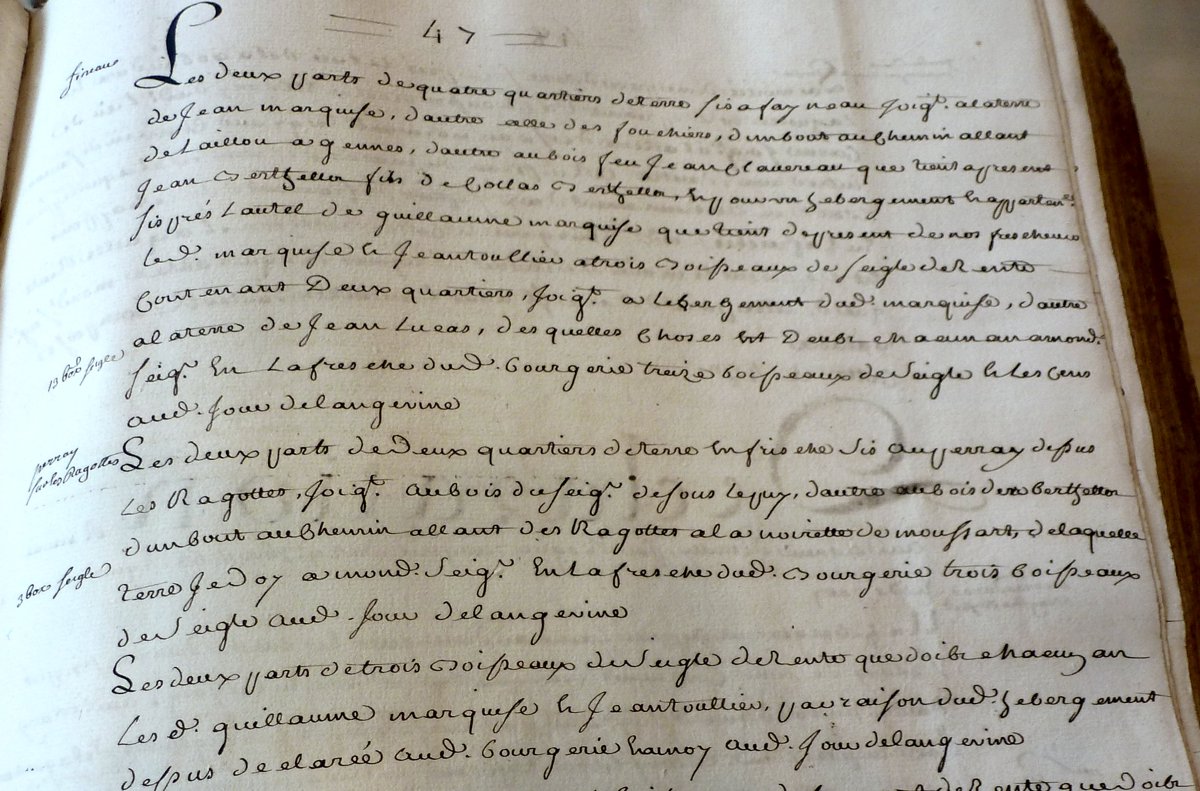 47
Les deux parts de quatre quartiers de terre sis a fay neau joigt. a la terre
de Jean marquise, d'autre a celle des fouchiers, d'un bout au chemin allant
de Laillou a gennes, d'autre au bois feu Jean Clavereau que tient a present
Jean Berthellon fils de Collas Berthellon, et pour un hebergement et apparten.
sis prés Lautel de guillaume marquise que tient de present de nos frescheurs
led. marquise et Jean toullier a trois Boisseaux de seigle de Rente
Contenant Deux quartiers, Joigt. a lebergement dud. marquise, d'autre
a la terre de Jean Lucas, des quelles Choses est Deube chacun an a mond.
Seigr. En La fresche dud. bourgerie treize boisseaux de seigle et les Cens
13 box seigle
aud. Jour de langevine
Les deux parts de Deux quartiers de terre en frische sis au perray dessus
perray
sur les Ragottes
Les Ragottes, Joigt. au bois du seigr. de sous le puy, d'autre au bois de Berthellon
d'un bout au Chemin allant des Ragottes a la noirette de moussart, de laquelle
terre Je Doy a mond. Seigr. En La fresche dud. Bourgerie trois boisseaux
3 box seigle
de seigle aud. Jour de langevine
Les deux parts de trois Boisseaux de seigle de Rente que doibt chacun an
Les d. guillaume marquise et Jean toullier, par raison dud. hebergement
dessus declaré aud. bourgerie hamoy aud. Jour de langevine
de Rente que doibt